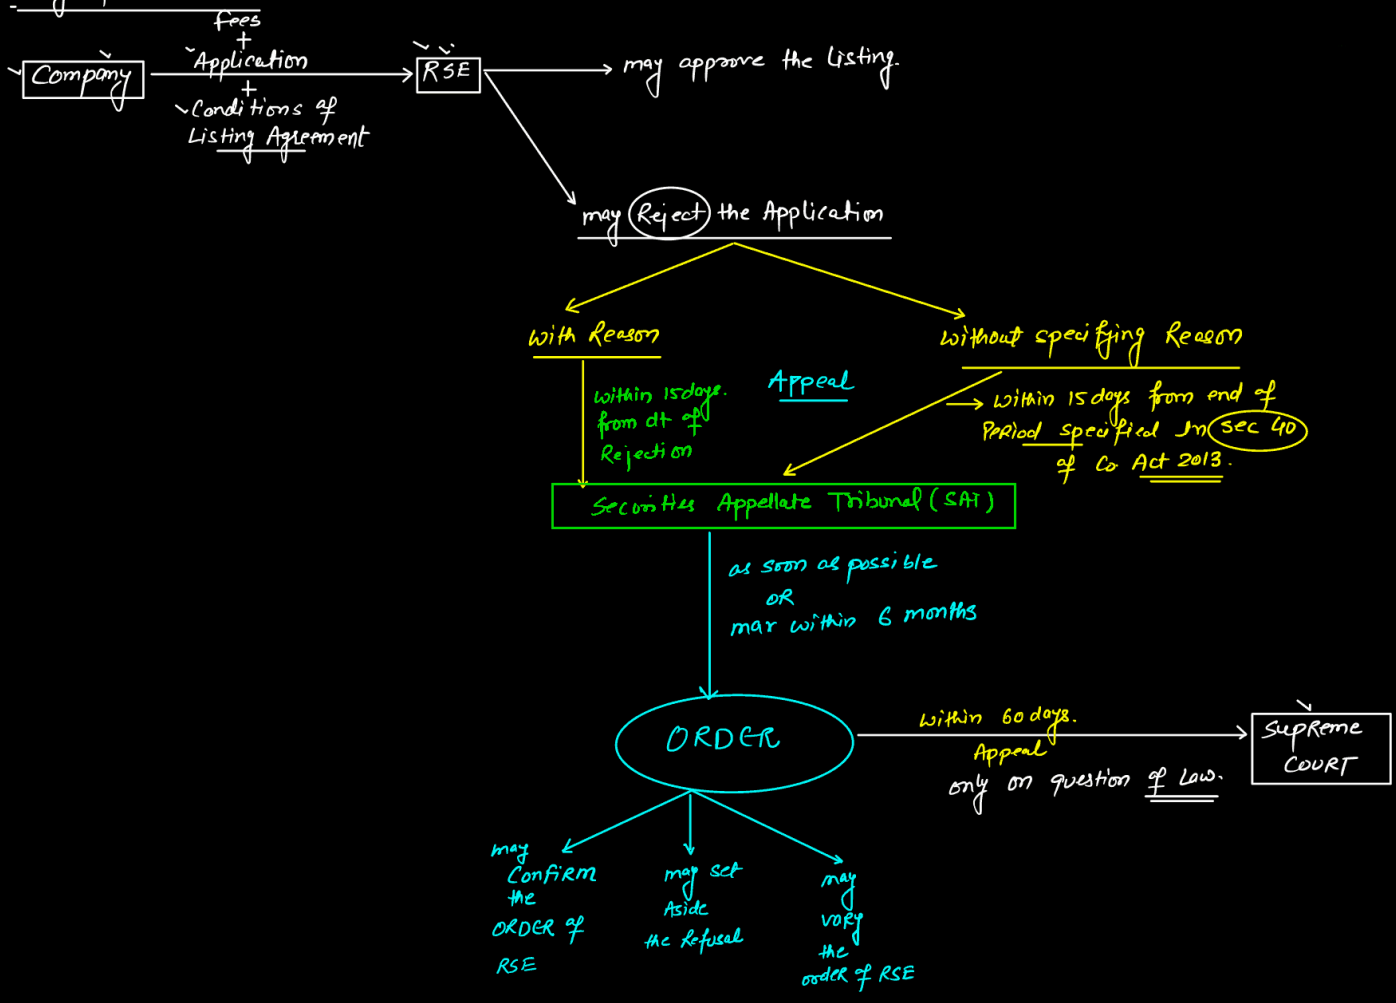 fees
+
Application
Company
RSE
may approve the Listing.
+
Conditions of
Listing Agreement
may Reject the Application
with Reason
without specifying Reason
Appeal
within 15 days.
from dt of
Rejection
within 15 days from end of
Period specified In sec 40
of Co Act 2013.
Securities Appellate Tribunal (SAT)
as soon as possible
OR
max within 6 months
ORDER
within 60 days.
Appeal
only on question of Law.
Supreme
COURT
may
Confirm
the
ORDER of
RSE
may set
Aside
the Refusal
may
vary
the
order of RSE